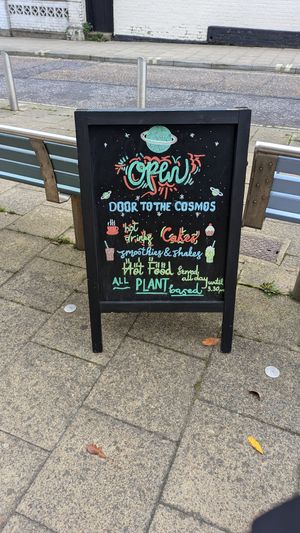 OPEN
DOOR TO THE COSMOS
Hot drinks Cakes
smoothies & shakes
Hot Food Served all day until 3.30pm
ALL PLANT based